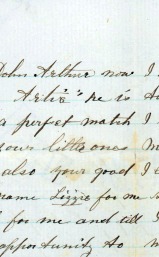 John Arthur now I
"Artie" he is
a perfect match I
yours little ones
also your good I
name Lizzie for me
I for me and tell
opportunity to